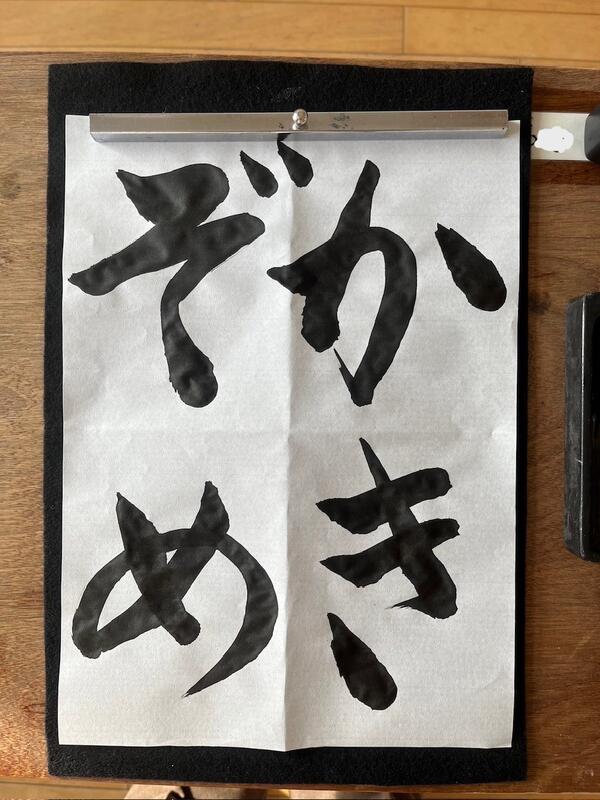 かき
ぞめ